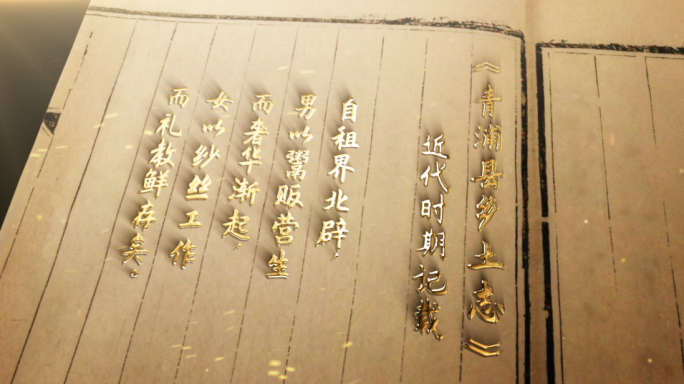 《青浦县乡土志》
近代时期记载
自租界北辟，
男以鬻贩营生
而奢华渐起，
女以纱丝工作
而礼教鲜存矣。